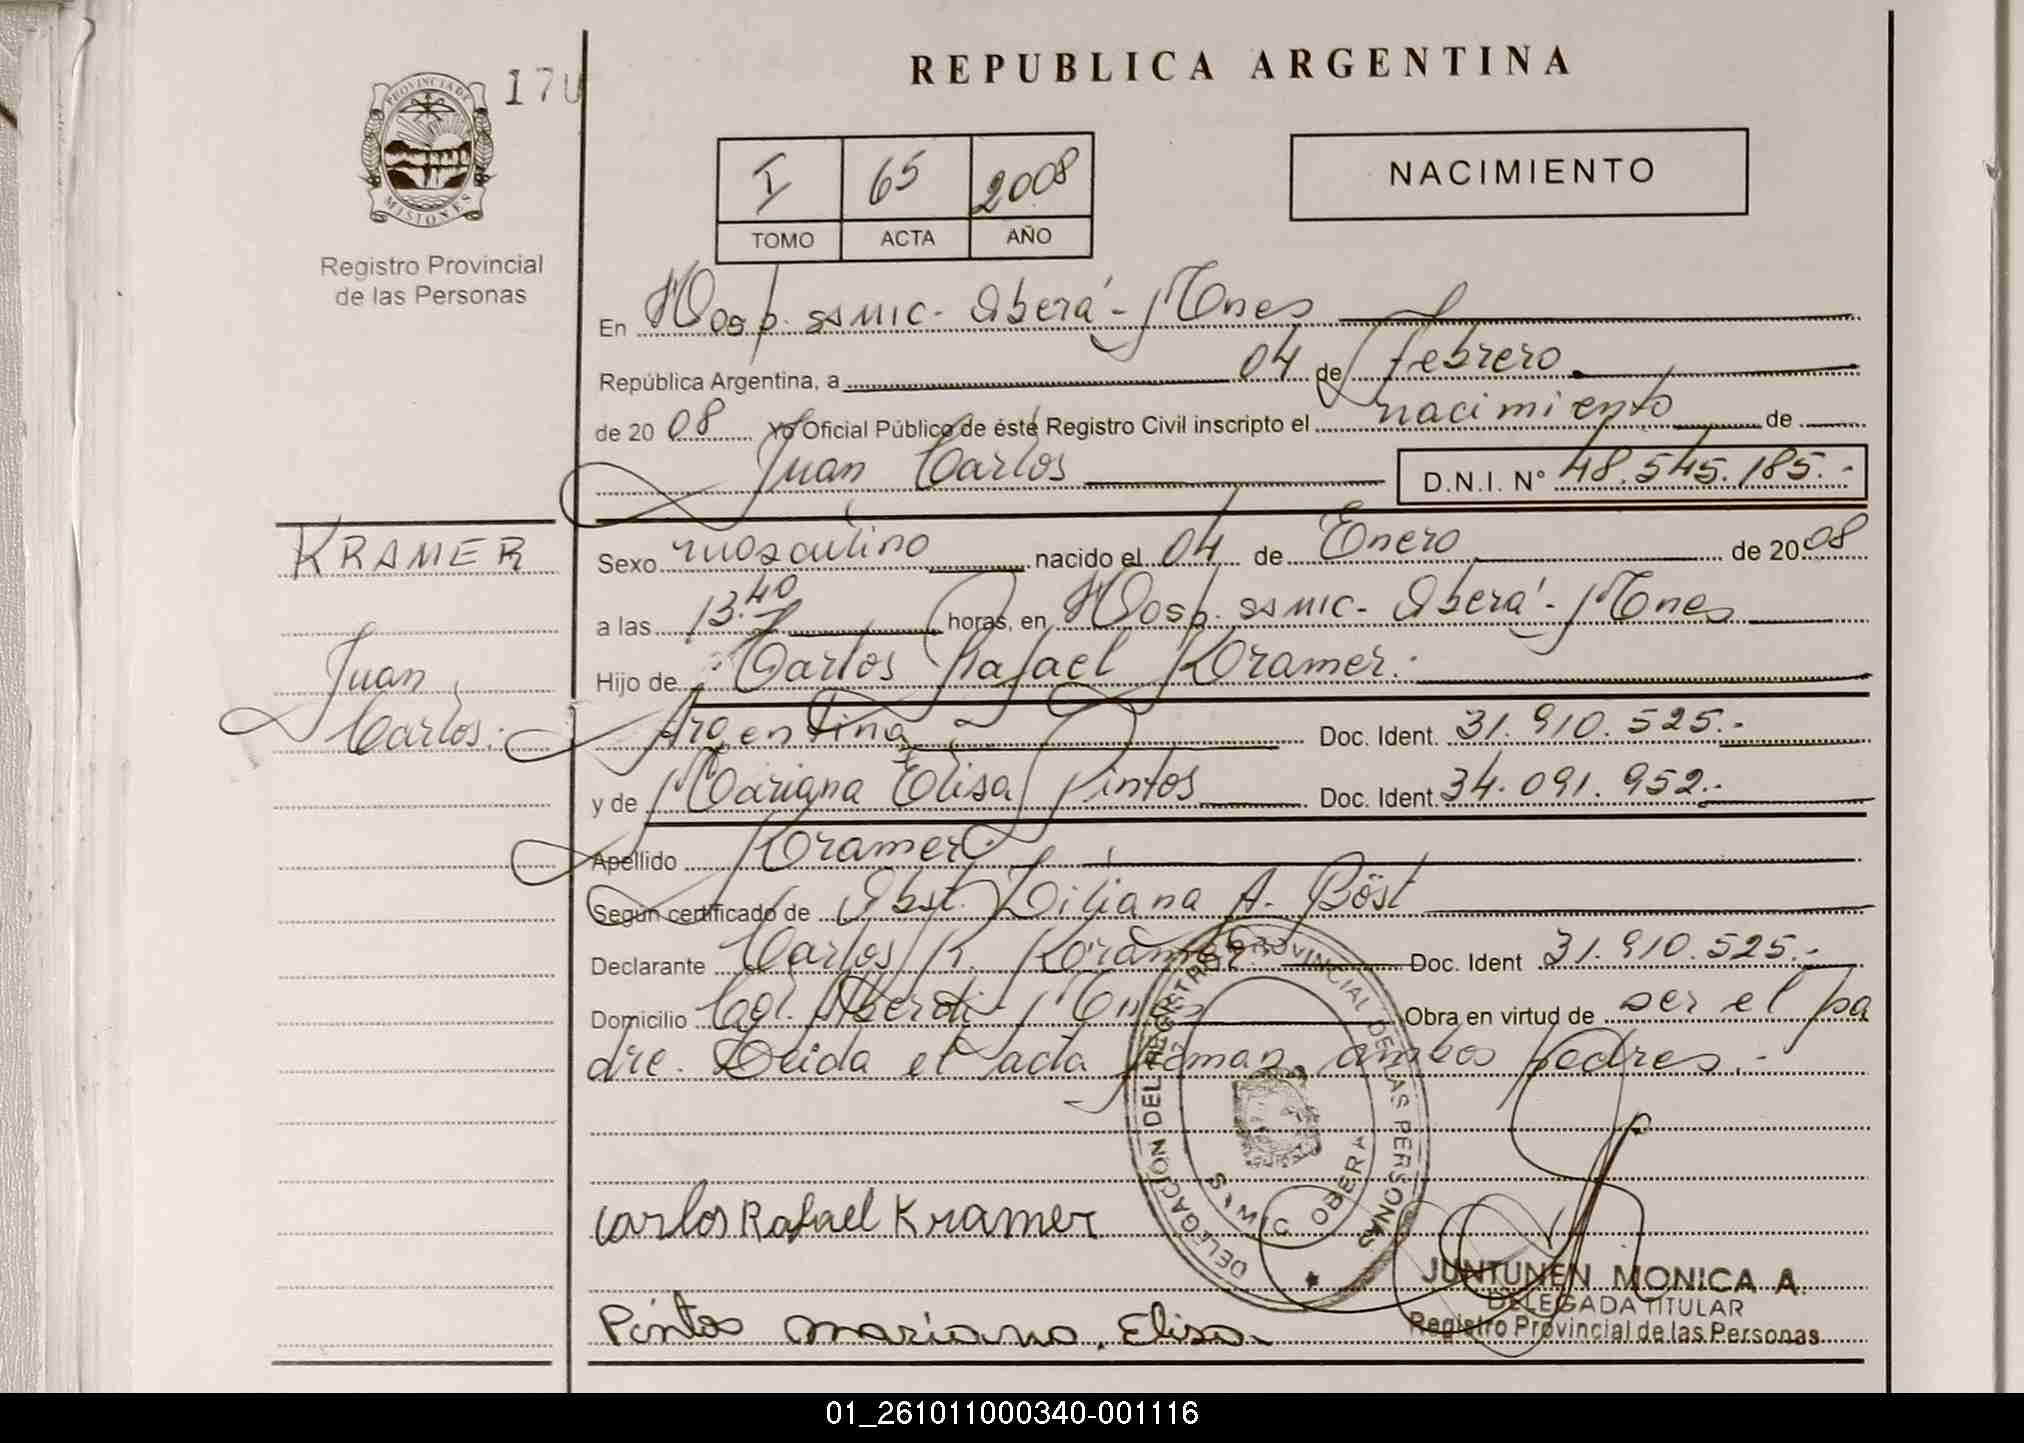 REPUBLICA ARGENTINA
PROVINCIA DE
MISIONES
Registro Provincial
de las Personas
I 65 2008
TOMO ACTA AÑO
NACIMIENTO
En Hosp. SAMIC - Oberá - Mnes
República Argentina, a 04 de febrero
de 2008 Yo Oficial Público de éste Registro Civil inscripto el nacimiento de
Juan Carlos D.N.I. N° 48.545.185.-
KRAMER
Juan
Carlos.
Sexo masculino nacido el 04 de Enero de 2008
a las 13.40 horas, en Hosp. SAMIC - Oberá - Mnes
Hijo de Carlos Rafael Kramer.
Argentina Doc. Ident. 31.910.525.-
y de Mariana Elisa Pintos Doc. Ident. 34.091.952.-
Apellido Kramer.
Según certificado de Obst. Liliana A. Böst
Declarante Carlos R. Kramer. Doc. Ident 31.910.525.-
Domicilio Cgl. Alberdi - Mnes Obra en virtud de ser el pa
dre. Leida el acta firman ambos padres.-
DELEGACIÓN DEL REGISTRO PROVINCIAL DE LAS PERSONAS
SAMIC OBERA
Carlos Rafael Kramer
Pintos Mariana. Elisa.
JUNTUNEN MONICA A.
DELEGADA TITULAR
Registro Provincial de las Personas
01_261011000340-001116